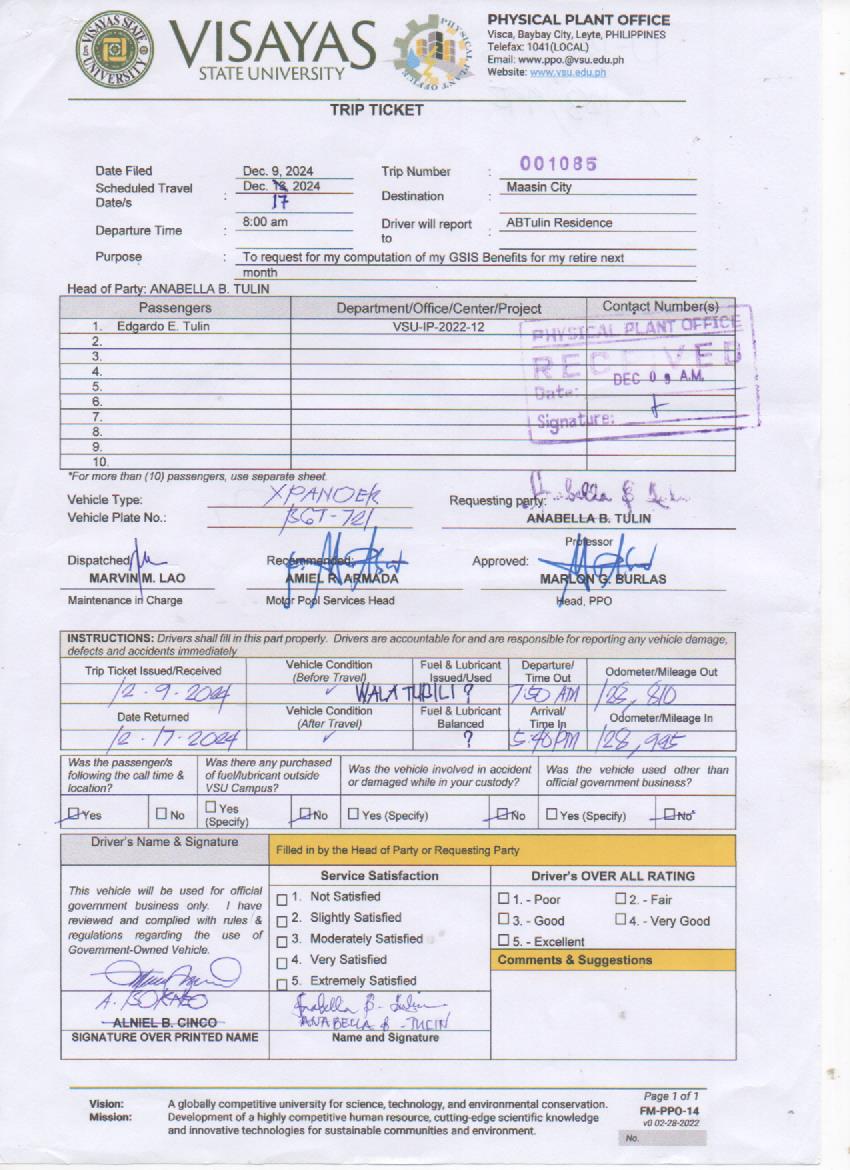 VISAYAS STATE UNIVERSITY
VISAYAS
STATE UNIVERSITY
PHYSICAL PLANT OFFICE
PHYSICAL PLANT OFFICE
Visca, Baybay City, Leyte, PHILIPPINES
Telefax: 1041(LOCAL)
Email: www.ppo.@vsu.edu.ph
Website: www.vsu.edu.ph
TRIP TICKET
Date Filed : Dec. 9, 2024 Trip Number : 001085
Scheduled Travel Date/s : Dec. 18, 2024 17 Destination : Maasin City
Departure Time : 8:00 am Driver will report to : ABTulin Residence
Purpose : To request for my computation of my GSIS Benefits for my retire next
month
Head of Party: ANABELLA B. TULIN
Passengers Department/Office/Center/Project Contact Number(s)
1. Edgardo E. Tulin VSU-IP-2022-12
2.
3.
4.
5.
6.
7.
8.
9.
10.
PHYSICAL PLANT OFFICE
RECEIVED
Date: DEC 09 A.M.
Signature:
*For more than (10) passengers, use separate sheet.
Vehicle Type: XPANDER Requesting party: Anabella B Tulin
Vehicle Plate No.: ANABELLA B. TULIN
Professor
Dispatched: Recommended: Approved:
MARVIN M. LAO AMIEL R. ARMADA MARLON G. BURLAS
Maintenance in Charge Motor Pool Services Head Head, PPO
INSTRUCTIONS: Drivers shall fill in this part properly. Drivers are accountable for and are responsible for reporting any vehicle damage,
defects and accidents immediately
Trip Ticket Issued/Received Vehicle Condition (Before Travel) Fuel & Lubricant Issued/Used Departure/ Time Out Odometer/Mileage Out
12-9-2024 ✓ WALA TUBIL ? 7:50 AM 128, 810
Date Returned Vehicle Condition (After Travel) Fuel & Lubricant Balanced Arrival/ Time In Odometer/Mileage In
12-17-2024 ✓ ? 5:40PM 128,995
Was the passenger/s following the call time & location? Was there any purchased of fuel/lubricant outside VSU Campus? Was the vehicle involved in accident or damaged while in your custody? Was the vehicle used other than official government business?
☐ Yes ☐ No ☐ Yes (Specify) ☐ No ☐ Yes (Specify) ☐ No ☐ Yes (Specify) ☐ No
Driver's Name & Signature Filled in by the Head of Party or Requesting Party
This vehicle will be used for official
government business only. I have
reviewed and complied with rules &
regulations regarding the use of
Government-Owned Vehicle.
ALNIEL B. CINCO
SIGNATURE OVER PRINTED NAME
Service Satisfaction
☐ 1. Not Satisfied
☐ 2. Slightly Satisfied
☐ 3. Moderately Satisfied
☐ 4. Very Satisfied
☐ 5. Extremely Satisfied
Anabella B. Tulin
ANABELLA B. TULIN
Name and Signature
Driver's OVER ALL RATING
☐ 1. - Poor ☐ 2. - Fair
☐ 3. - Good ☐ 4. - Very Good
☐ 5. - Excellent
Comments & Suggestions
Vision: A globally competitive university for science, technology, and environmental conservation.
Mission: Development of a highly competitive human resource, cutting-edge scientific knowledge
and innovative technologies for sustainable communities and environment.
Page 1 of 1
FM-PPO-14
v0 02-28-2022
No.